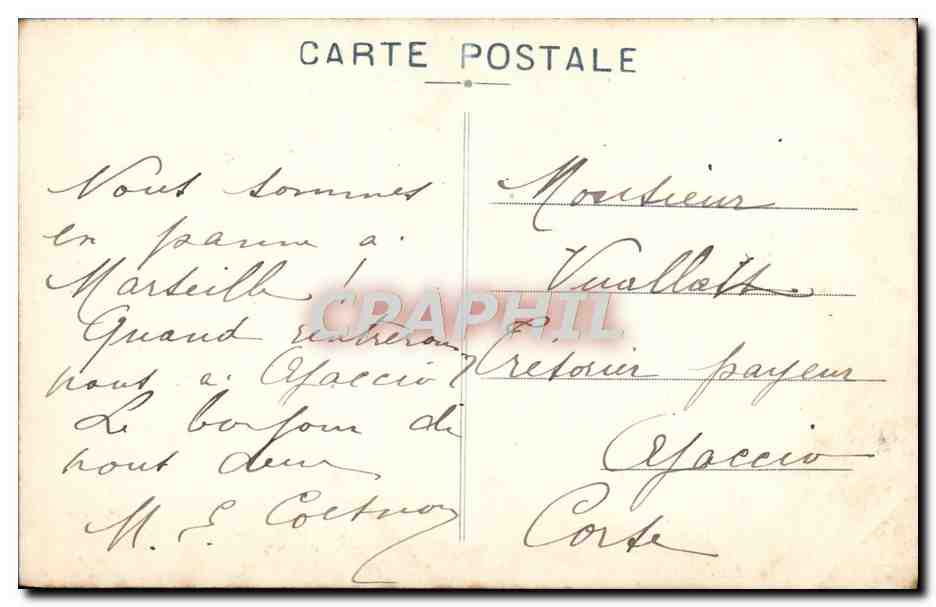 CARTE POSTALE
Nous sommes
en panne a
Marseille !
Quand rentrerons
nous a Ajaccio ?
Le bonjour de
nous deux
M. E.
Monsieur
Trésorier payeur
Ajaccio
Corse
CPRAPHIL